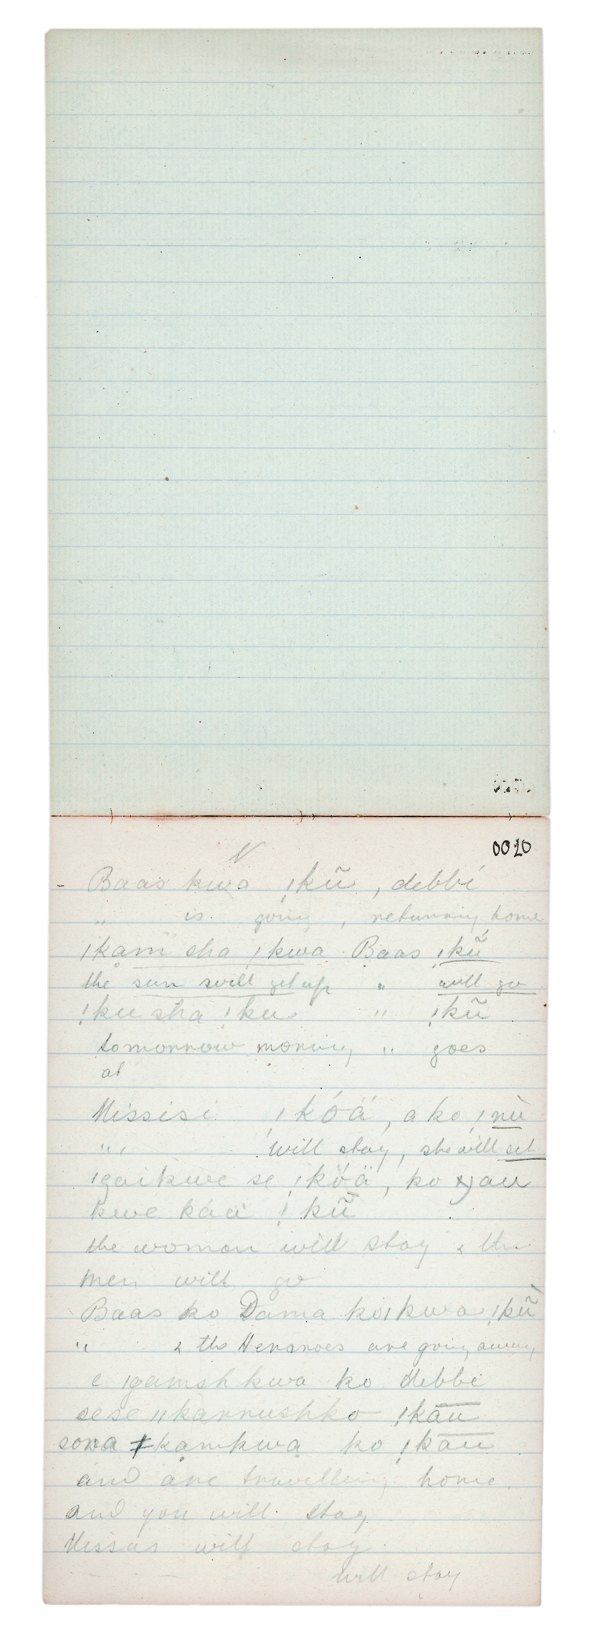 0020
Baas kwa !kũ, debbé
„ is going, returning home
!kam sha !kwa Baas !kũ
the sun will get up „ will go
!ku sha !ku „ !kũ
tomorrow morning „ goes
at
Missisi !kóä, a ko !nù
„ will stay, she will sit
!gaikwe se !kóä, ko
kwe káä !kũ
the woman will stay & the
men will go
Baas ko Dama ko!kwa !kũ
„ & the Hereroes are going away
e !gamshkwa ko debbé
sese ||karrushko !kāū
sona ǂkamkwa ko !kāū
and are travelling home
and you will stay
Missus will stay
will stay